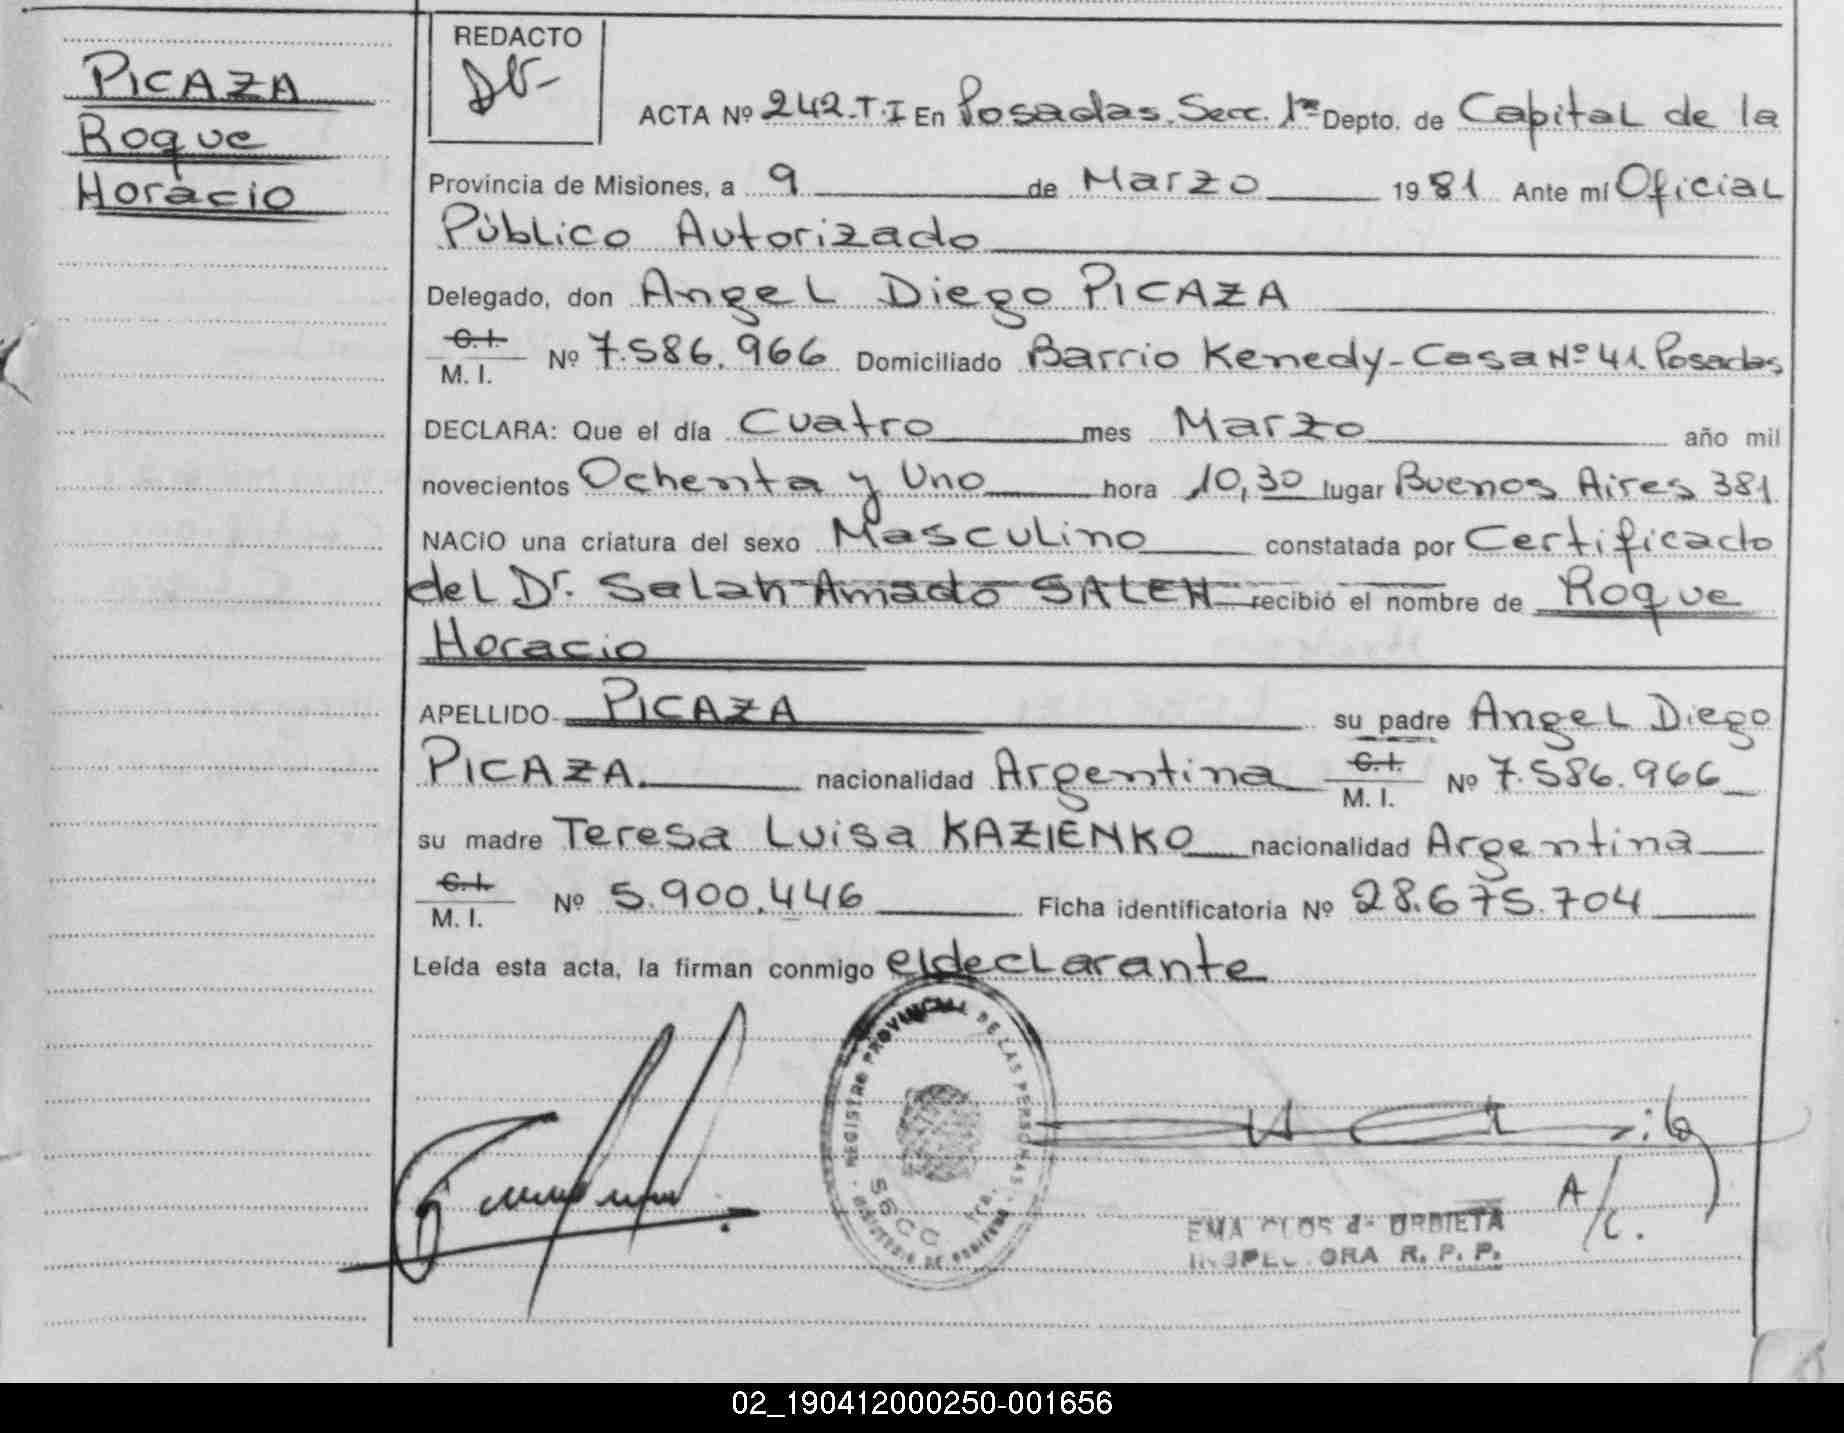 PICAZA
Roque
Horacio
REDACTO
ACTA Nº 242.T.I En Posadas. Secc. 1ra Depto. de Capital de la
Provincia de Misiones, a 9 de Marzo 1981 Ante mí Oficial
Público Autorizado
Delegado, don Angel Diego PICAZA
C.I.
M. I. Nº 7.586.966 Domiciliado Barrio Kenedy-Casa Nº 41. Posadas
DECLARA: Que el día Cuatro mes Marzo año mil
novecientos Ochenta y Uno hora 10,30 lugar Buenos Aires 381
NACIO una criatura del sexo Masculino constatada por Certificado
del Dr. Salah Amado SALEH recibió el nombre de Roque
Horacio
APELLIDO PICAZA su padre Angel Diego
PICAZA. nacionalidad Argentina C.I. M. I. Nº 7.586.966
su madre Teresa Luisa KAZIENKO nacionalidad Argentina
C.I.
M. I. Nº 5.900.446 Ficha identificatoria Nº 28.675.704
Leída esta acta, la firman conmigo el declarante
REGISTRO PROVINCIAL DE LAS PERSONAS
SECC 1ra.
MINISTERIO DE GOBIERNO
A/c.
EMA CLOS de URBIETA
INSPECTORA R. P. P.
02_190412000250-001656